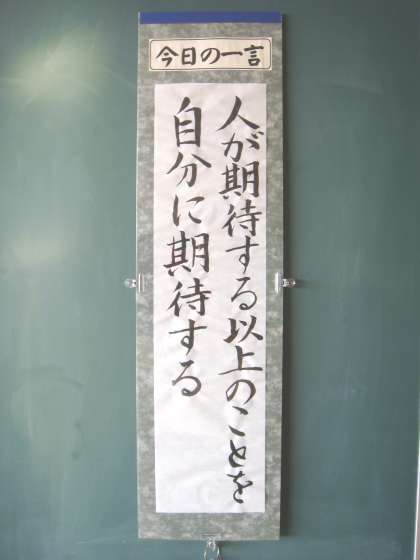 今日の一言
人が期待する以上のことを
自分に期待する